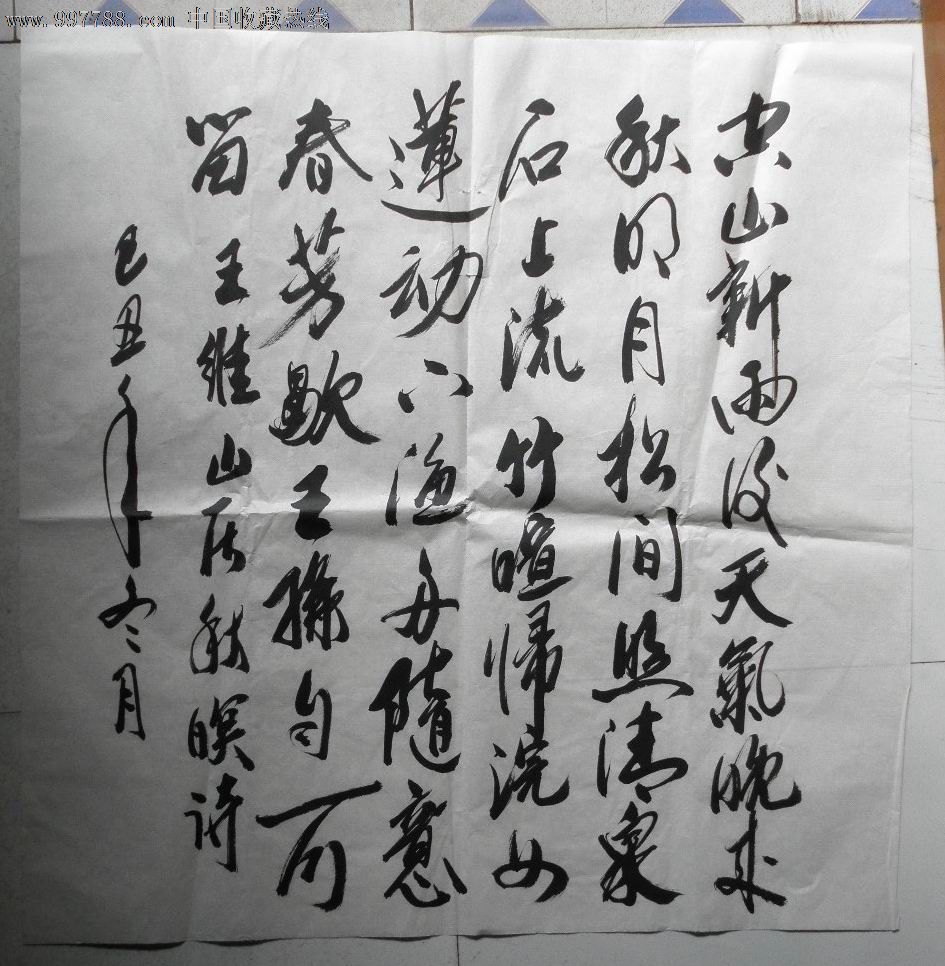 www.997788.com 中国收藏热线
空山新雨後天氣晚来
秋明月松间照清泉
石上流竹喧歸浣女
蓮动下渔舟随意
春芳歇王孫自可
留 王維山居秋暝诗
己丑年冬月